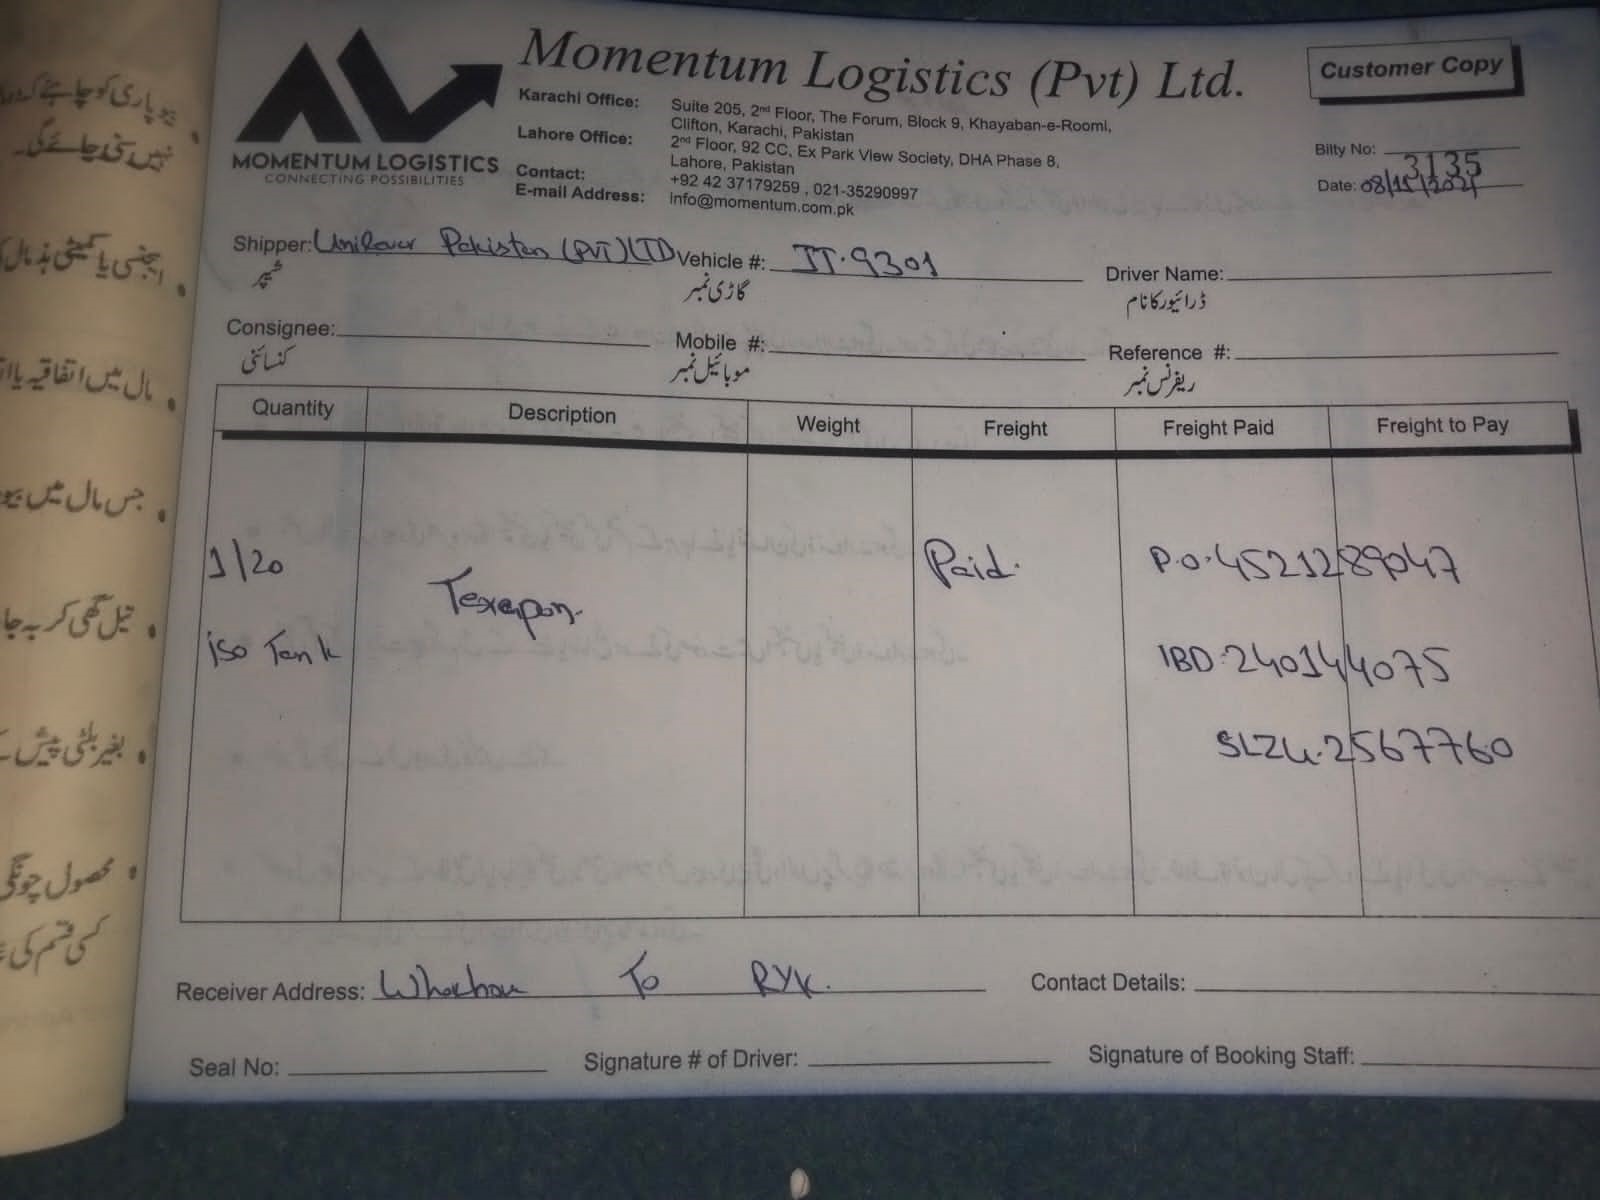 بیوپاری کو چاہئے کہ
نہیں سنی جائے گی۔
ایجنسی یا کمیٹی ہذا مال
مال میں اتفاقیہ یا
جس مال میں
تیل گھی کر بہ جا
بغیر بلٹی پیش
محصول چونگی
کسی قسم کی
MOMENTUM LOGISTICS
CONNECTING POSSIBILITIES
Momentum Logistics (Pvt) Ltd.
Customer Copy
Karachi Office: Suite 205, 2nd Floor, The Forum, Block 9, Khayaban-e-Roomi,
Clifton, Karachi, Pakistan
Lahore Office: 2nd Floor, 92 CC, Ex Park View Society, DHA Phase 8,
Lahore, Pakistan
Contact: +92 42 37179259 , 021-35290997
E-mail Address: info@momentum.com.pk
Bilty No: 3135
Date: 08/11/2021
Shipper: Unilever Pakistan (PVT) LTD Vehicle #: JT.9301 Driver Name:
شپر گاڑی نمبر ڈرائیور کا نام
Consignee: Mobile #: Reference #:
کنسائنی موبائیل نمبر ریفرنس نمبر
Quantity Description Weight Freight Freight Paid Freight to Pay
1/20 Texapon. Paid. P.O.4521289047
iso Tank IBD.240144075
SLZU.2567760
Receiver Address: To RYK. Contact Details:
Seal No: Signature # of Driver: Signature of Booking Staff: